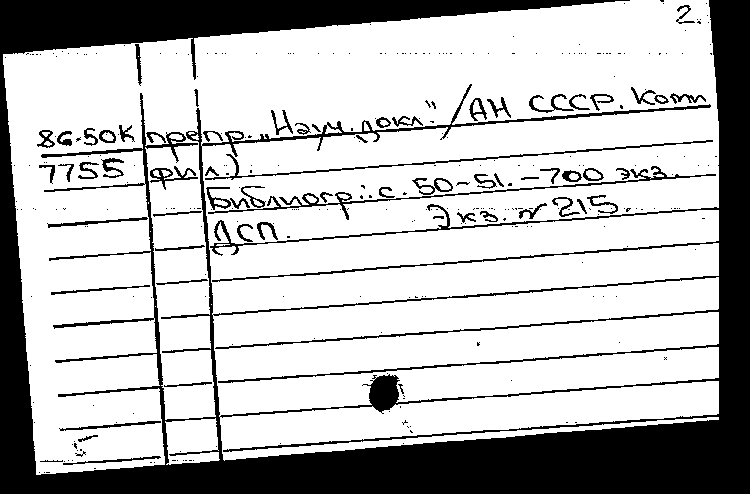 2.
86-50К препр. „Науч. докл." / АН СССР. Коми
7755 фил.).
Библиогр.: с. 50-51. - 700 экз.
ДСП. Экз. № 215.
5